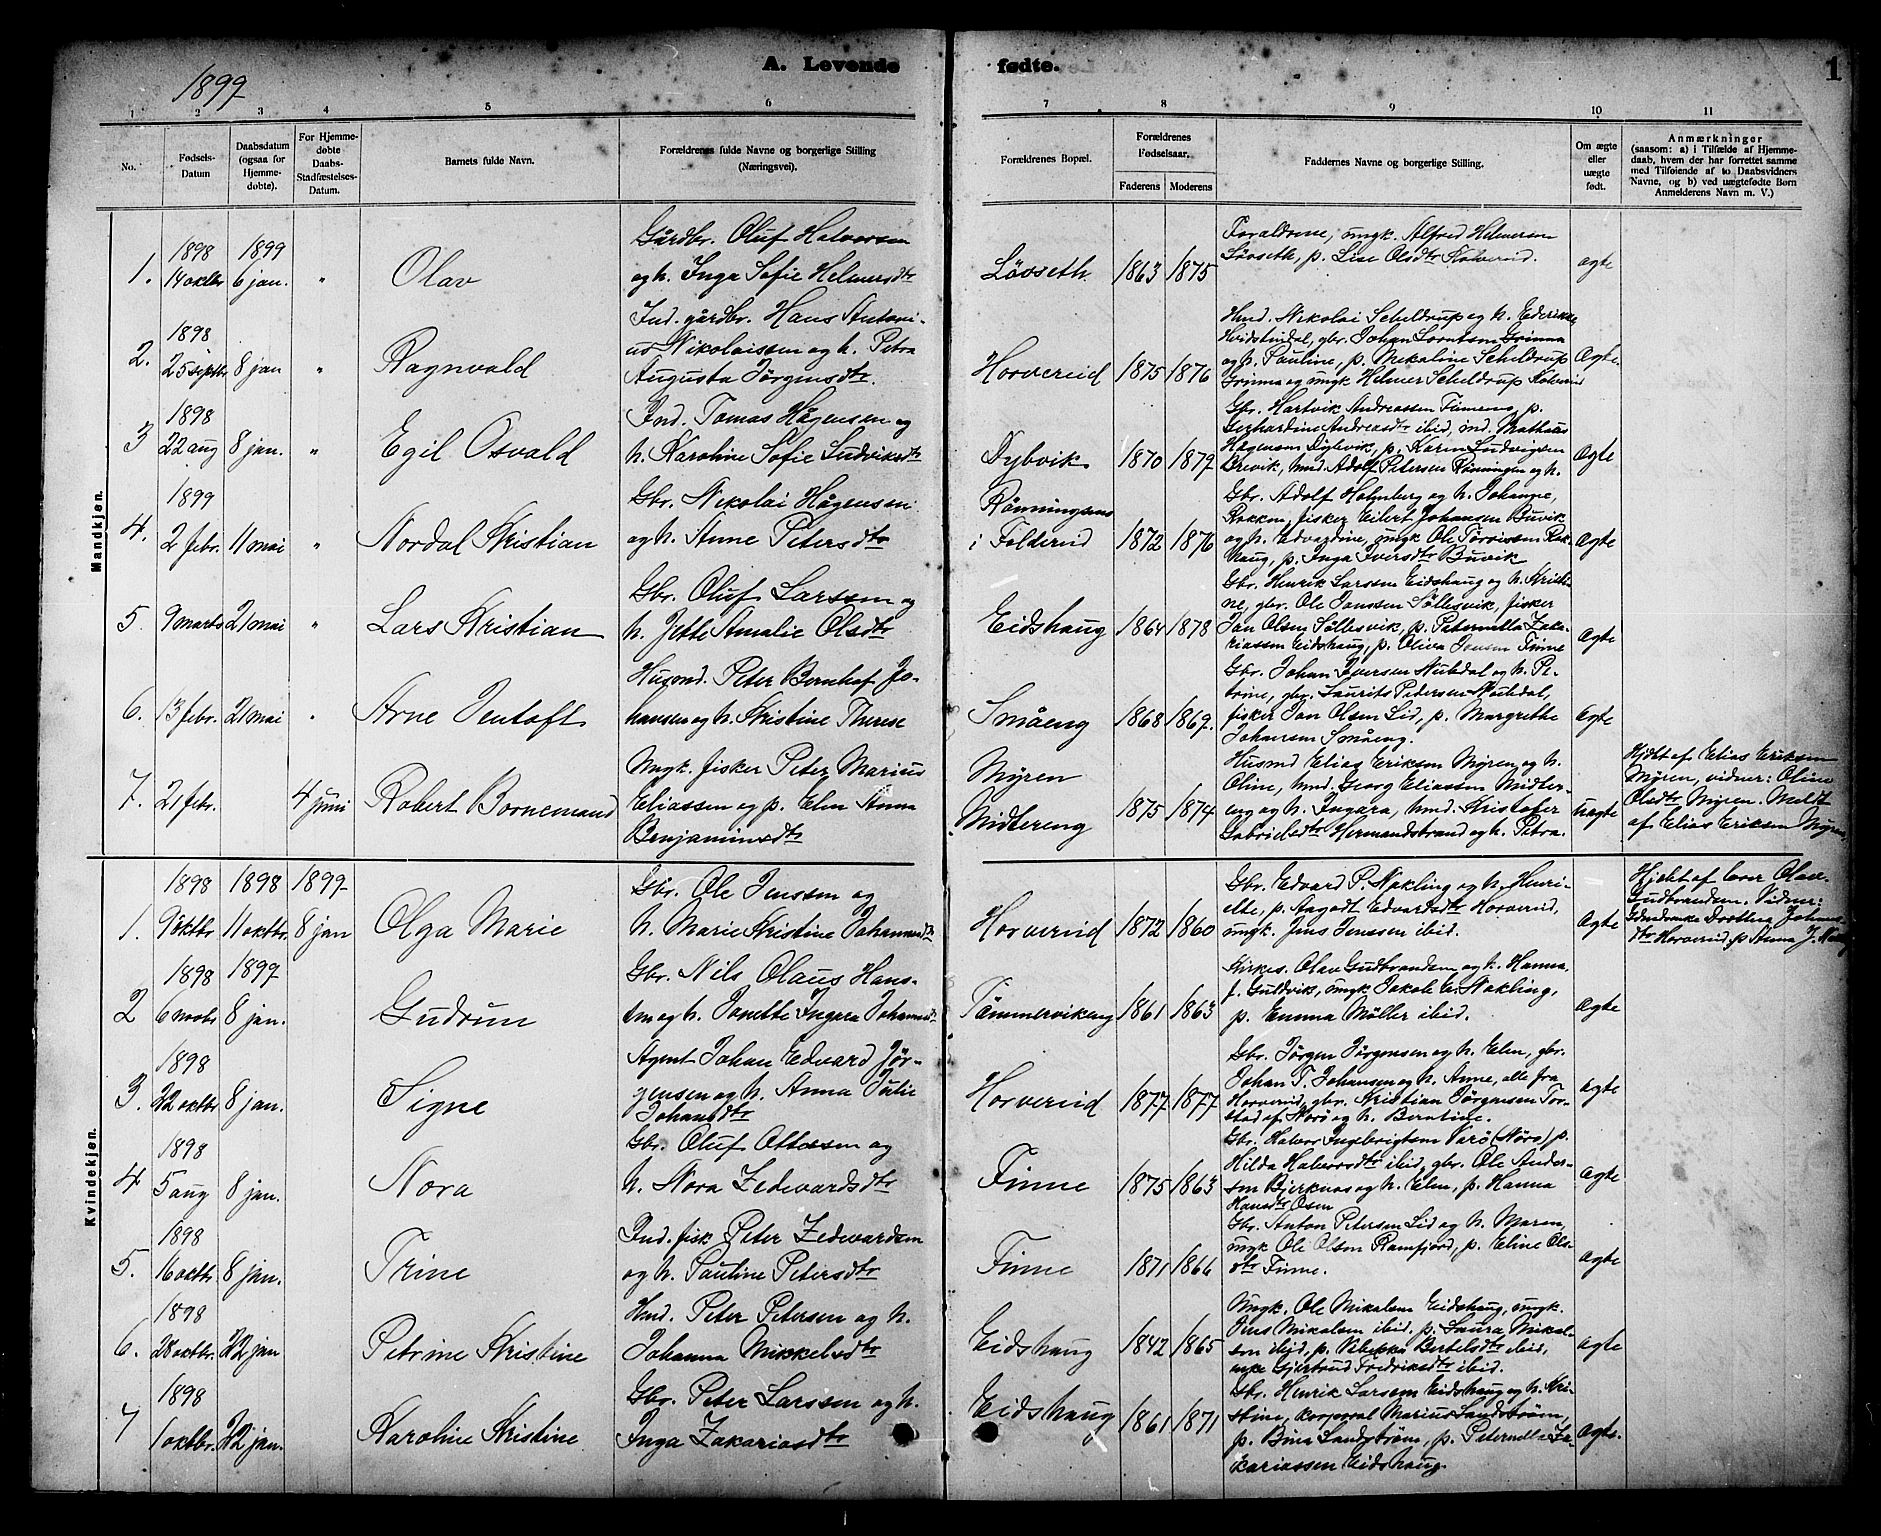 1899
A. Levende
fødte.
1
1 2 3 4 5 6 7 8 9 10 11
No.
Fødsels-
Datum
Daabsdatum
(ogsaa for
Hjemme-
døbte).
For Hjemme-
døbte
Daabs-
Stadfæstelses-
Datum.
Barnets fulde Navn.
Forældrenes fulde Navne og borgerlige Stilling
(Næringsvei).
Forældrenes Bopæl.
Forældrenes
Fødselsaar.
Faderens Moderens
Faddernes Navne og borgerlige Stilling.
Om ægte
eller
uægte
født.
Anmærkninger
(saasom: a) i Tilfælde af Hjemme-
daab, hvem der har forrettet samme
med Tilføiende af to Daabsvidners
Navne, og b) ved uægtefødte Børn
Anmelderens Navn m. V.)
Mandkjøn.
1898 1899
1. 14 oktbr 6 jan. " Olav
Gårdbr. Oluf Halvorsen
og h. Inga Sofie Helmersdtr
Lövseth 1863 1875
Forældrene, ungk. Alfred Helmersen
Lövseth, p. Lise Olsdtr Kolverid.
ægte
1898
2. 25 septbr 8 jan " Ragnvald
Ind. gårdbr. Hans Antoni-
us Nikolaissen og h. Petra
Augusta Jörgensdtr.
Horvereid 1875 1876
Hmd. Nikolai Scheldrup og h. Ederikke
Hvidstindal, gbr. Johan Lorntsen Grinna
og h. Pauline, p. Mekaline Scheldrup
Grinna og ungk Helmer Scheldrup Kolverid
Ægte.
1898
3 22 aug 8 jan. " Egil Osvald
Ind. Tomas Hågensen og
h. Karoline Sofie Ludviksdtr
Dybvik 1870 1879
Gbr. Hartvik Andreassen Finnens, p.
Gerhardine Andreasdtr ibid, md. Mathæus
Hågensen Dybvik, p. Karen Ludvigsen
Brevik, hmd. Adolf Petersen Rönningen og h.
Ægte
1899
4. 2 febr. 11 mai " Nordal Kristian
Gbr. Nikolai Hågensen
og h. Anne Petersdtr
Rönningsens
i Folderid 1872 1876
Gbr. Adolf Holmberg og h. Johanne,
Rokken, fisker Eilert Johansen Buvik
og h. Edvardine, ungk Ole Torrissen Rok-
haug, p. Inga Iversdtr Buvik
Ægte
5. 9 marts 21 mai " Lars Kristian
Gbr. Oluf Larssen og
h. Jette Amalie Olsdtr
Eidshaug 1864 1878
Gbr. Henrik Larssen Eidshaug og h. Kristi-
ne, gbr. Ole Jonssen Söllesvik, fisker
Jan Olsen Söllesvik, p. Peternella Zaka-
riassen Eidshaug, p. Oliva Jensen Finne
ægte
6. 13 febr. 21 mai " Arne Jentoft
Husmd. Peter Bernhof Jo-
hansen og h. Kristine Therese
Småeng 1868 1869.
Gbr. Johan Iversen Nubdal og h. Pe-
trine, gbr. Laurits Pedersen Nubdal,
fisker Jan Olsen Lid, p. Margrethe
Johansen Småeng.
Ægte
7. 21 febr. 4 juni Robert Bornemand
Ungk. fisker Peter Marius
Eliassen og p. Elen Anna
Benjaminsdtr
Myren
Midtereng 1875 1874
Husmd Elias Eriksen Myren og h.
Oline, hmd. Georg Eliassen Midter-
eng og h. Ingara, hmd. Kristofer
Gabrielsdtr Hermandstrand og h. Petra.
uægte
Hjdbt af Elias Eriksen
Myren, vidner: Oline
Olsdtr Myren. Meldt
af Elias Eriksen Myren
Kvindekjøn.
1898 1898 1899
1. 9 oktbr 11 oktbr. 8 jan Olga Marie
Gbr. Ole Jenssen og
h. Marie Kristine Johannesdtr
Horvereid 1872 1860
Gbr. Edvard P. Nakling og h. Henri-
ette, p. Aagodt Edvardsdtr Horvereid,
ungk. Jens Jenssen ibid.
Ægte
Hjdbt af Lærer Olav
Gudbrandsen. Vidner:
Dorthea Johans-
dtr Horvereid, p Anna J.
1898 1899
2 6 novbr 8 jan. Gudrun
Gbr. Nils Olaus Hans-
sen og h. Janette Ingera Johannesdtr
Tömmervikeng 1861 1863
Kirkes. Olav Gudbrandsen og h. Hanna,
f. Guldvik, ungk Jakob A. Nakling,
p. Emma Möller ibid.
ægte
1898
3. 22 oktbr 8 jan. Signe
Agent Johan Edvard Jör-
gensen og h. Anna Julie
Johansdtr
Horvereid 1877 1877
Gbr. Jörgen Jörgensen og h. Elen, gbr.
Johan T. Johansen og h. Anne, alle fra
Horvereid, gbr. Kristian Jörgensen Tor-
stad af Nærö og h. Berntine.
ægte
1898
4 5 aug 8 jan. Nora
Gbr. Oluf Ottessen og
h. Nora Zedevardsdtr
Finne 1875 1863
Gbr. Halvor Ingebrigtsen Varö (Nærö) p.
Hilda Halvorsdtr ibid, gbr. Ole Ander-
sen Bjerknes og h. Elen, p. Hanna
Hansdtr Osen
ægte
1898
5. 16 oktbr 8 jan. Trine
Ind. fisk Peter Zedevardsen
og h. Pauline Petersdtr
Finne 1871 1866
Gbr. Anton Petersen Lid og h. Maren,
ungk Ole Olsen Ramfjord, p. Eline Ols-
dtr Finne.
ægte
1898
6. 28 oktbr. 22 jan Petrine Kristine
Hmd. Peter Petersen og h.
Johanna Mikkelsdtr
Eidshaug 1842 1865
Ungk. Ole Mikalsen Eidshaug, ungk.
Jens Mikalsen ibid. p. Laura Mikal-
sen ibid, p. Rebekka Bertelsdtr ibid,
enke Gjertrud Fredriksdtr ibid.
ægte
1898
7 1 oktbr. 22 jan. Karoline Kristine
Gbr. Peter Larssen og h.
Inga Zakariasdtr
Eidshaug 1861 1871
Gbr. Henrik Larssen Eidshaug og h. Kri-
stine, korporal Marius Sandström,
p. Bina Sandström, p. Peternella Za-
kariassen Eidshaug
ægte.